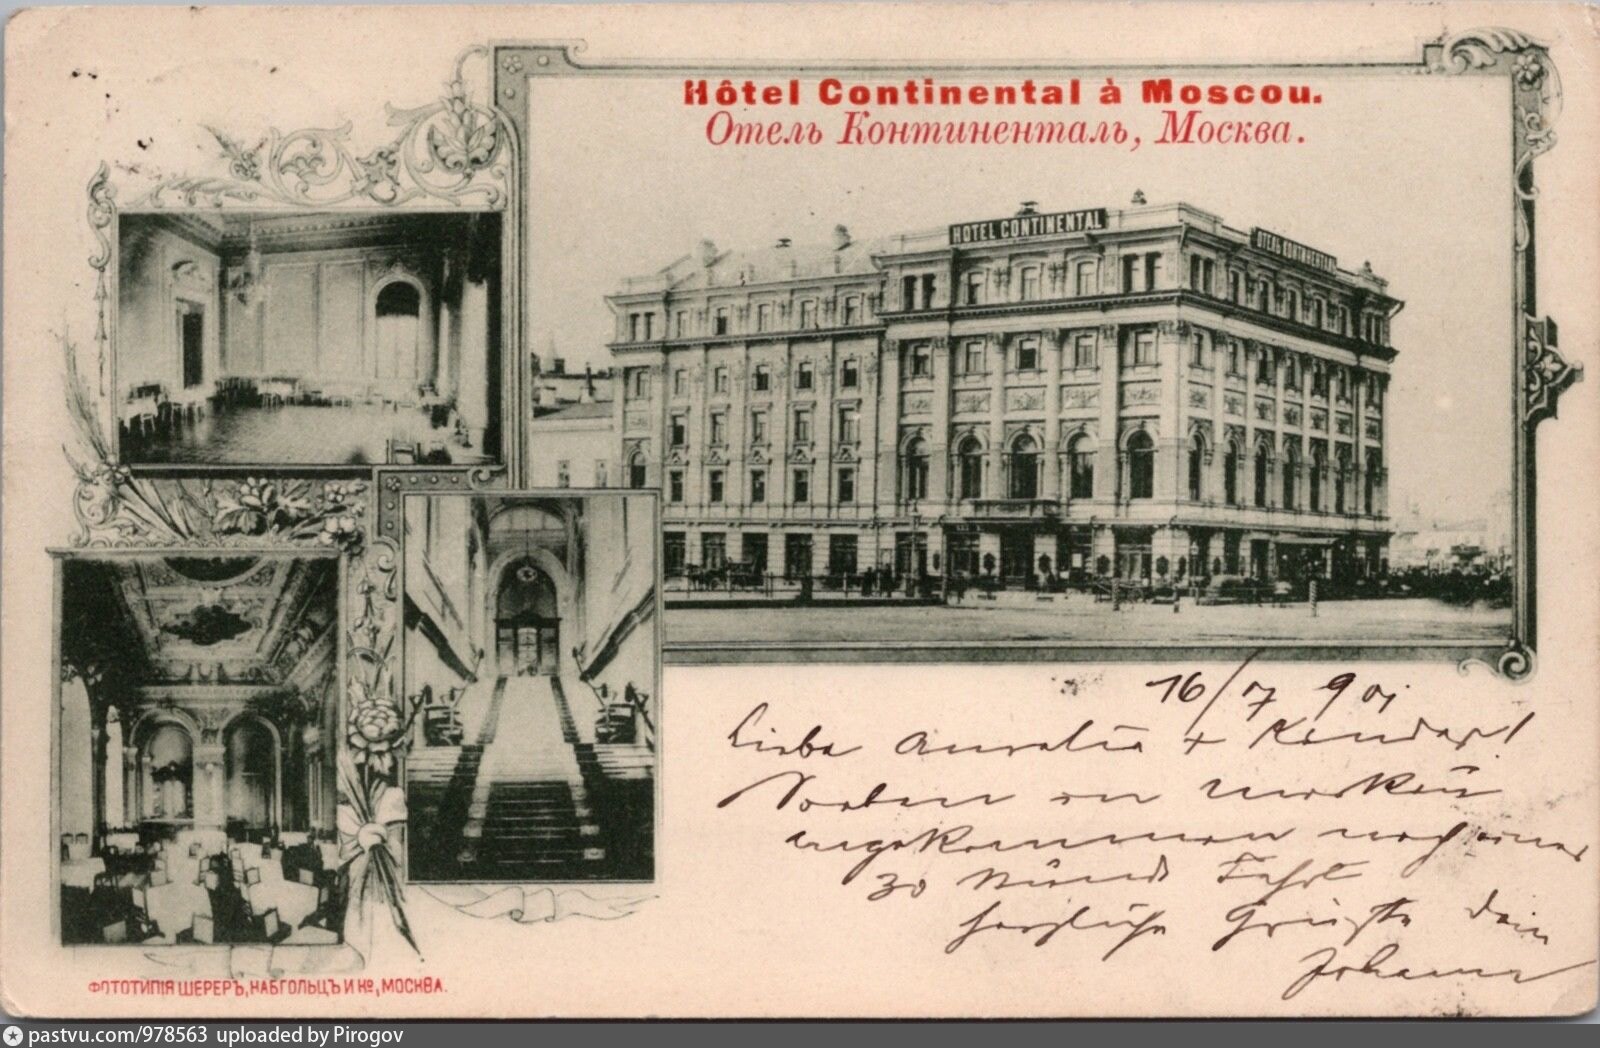 Hôtel Continental à Moscou.
Отель Континенталь, Москва.
HOTEL CONTINENTAL
ОТЕЛЬ КОНТИНЕНТАЛЬ
16/7 901
Liebe Aurelia +
Soeben in
angekommen nach einer
30 Stünd Fahrt
herzliche Grüsse Dein
Johann
ФОТОТИПІЯ ШЕРЕРЪ, НАБГОЛЬЦЪ И Ко, МОСКВА.
pastvu.com/978563 uploaded by Pirogov